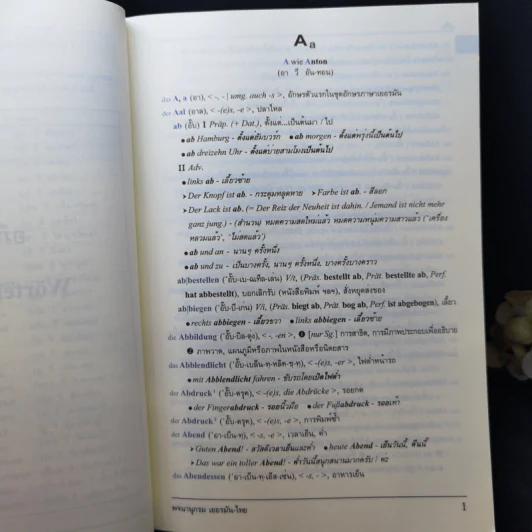 A a
A wie Anton
(อา วี อัน-ทอน)
der A, a (อา), < -, - | umg. auch -s >, อักษรตัวแรกในชุดอักษรภาษาเยอรมัน
der Aal (อาล), < -(e)s, -e >, ปลาไหล
ab (อั๊บ) I Präp. (+ Dat.), ตั้งแต่...เป็นต้นมา / ไป
● ab Hamburg - ตั้งแต่ฮัมบวร์ก ● ab morgen - ตั้งแต่พรุ่งนี้เป็นต้นไป
● ab dreizehn Uhr - ตั้งแต่บ่ายสามโมงเป็นต้นไป
II Adv.
● links ab - เลี้ยวซ้าย
➤ Der Knopf ist ab. - กระดุมหลุดหาย ➤ Farbe ist ab. - สีลอก
➤ Der Lack ist ab. (= Der Reiz der Neuheit ist dahin. / Jemand ist nicht mehr
ganz jung.) - (สำนวน) หมดความสดใหม่แล้ว หมดความหนุ่มความสาวแล้ว ('เครื่อง
หลวมแล้ว', 'ไม่สดแล้ว')
● ab und an - นานๆ ครั้งหนึ่ง
● ab und zu - เป็นบางครั้ง, นานๆ ครั้งหนึ่ง, บางครั้งบางคราว
ab|bestellen ('อั๊บ-เบ-ฌเท็ล-เล่น) V/t, (Präs. bestellt ab, Prät. bestellte ab, Perf.
hat abbestellt), บอกเลิกรับ (หนังสือพิมพ์ ฯลฯ), สั่งหยุดส่งของ
ab|biegen ('อั๊บ-บี-เก่น) V/i, (Präs. biegt ab, Prät. bog ab, Perf. ist abgebogen), เลี้ยว
● rechts abbiegen - เลี้ยวขวา ● links abbiegen - เลี้ยวซ้าย
die Abbildung ('อั๊บ-บิล-ดุง), < -, -en >, ❶ [nur Sg.] การสาธิต, การมีภาพประกอบเพื่ออธิบาย
❷ ภาพวาด, แผนภูมิหรือภาพในหนังสือหรือนิตยสาร
das Abblendlicht < -(e)s, -er >, ไฟต่ำหน้ารถ
● mit Abblendlicht fahren - ขับรถโดยเปิดไฟต่ำ
der Abdruck¹ ('อั๊บ-ดรุค), < -(e)s, die Abdrücke >, รอยกด
● der Fingerabdruck - รอยนิ้วมือ ● der Fußabdruck - รอยเท้า
der Abdruck² ('อั๊บ-ดรุค), < -(e)s, -e >, การพิมพ์ซ้ำ
der Abend ('อา-เบ็นท), < -s, -e >, เวลาเย็น, ค่ำ
➤ Guten Abend! - สวัสดีเวลาเย็นและค่ำ ● heute Abend - เย็นวันนี้, คืนนี้
➤ Das war ein toller Abend! - ค่ำวันนี้สนุกสนานมากครับ / คะ
das Abendessen < -s, - >, อาหารเย็น
พจนานุกรม เยอรมัน-ไทย 1
Wörter